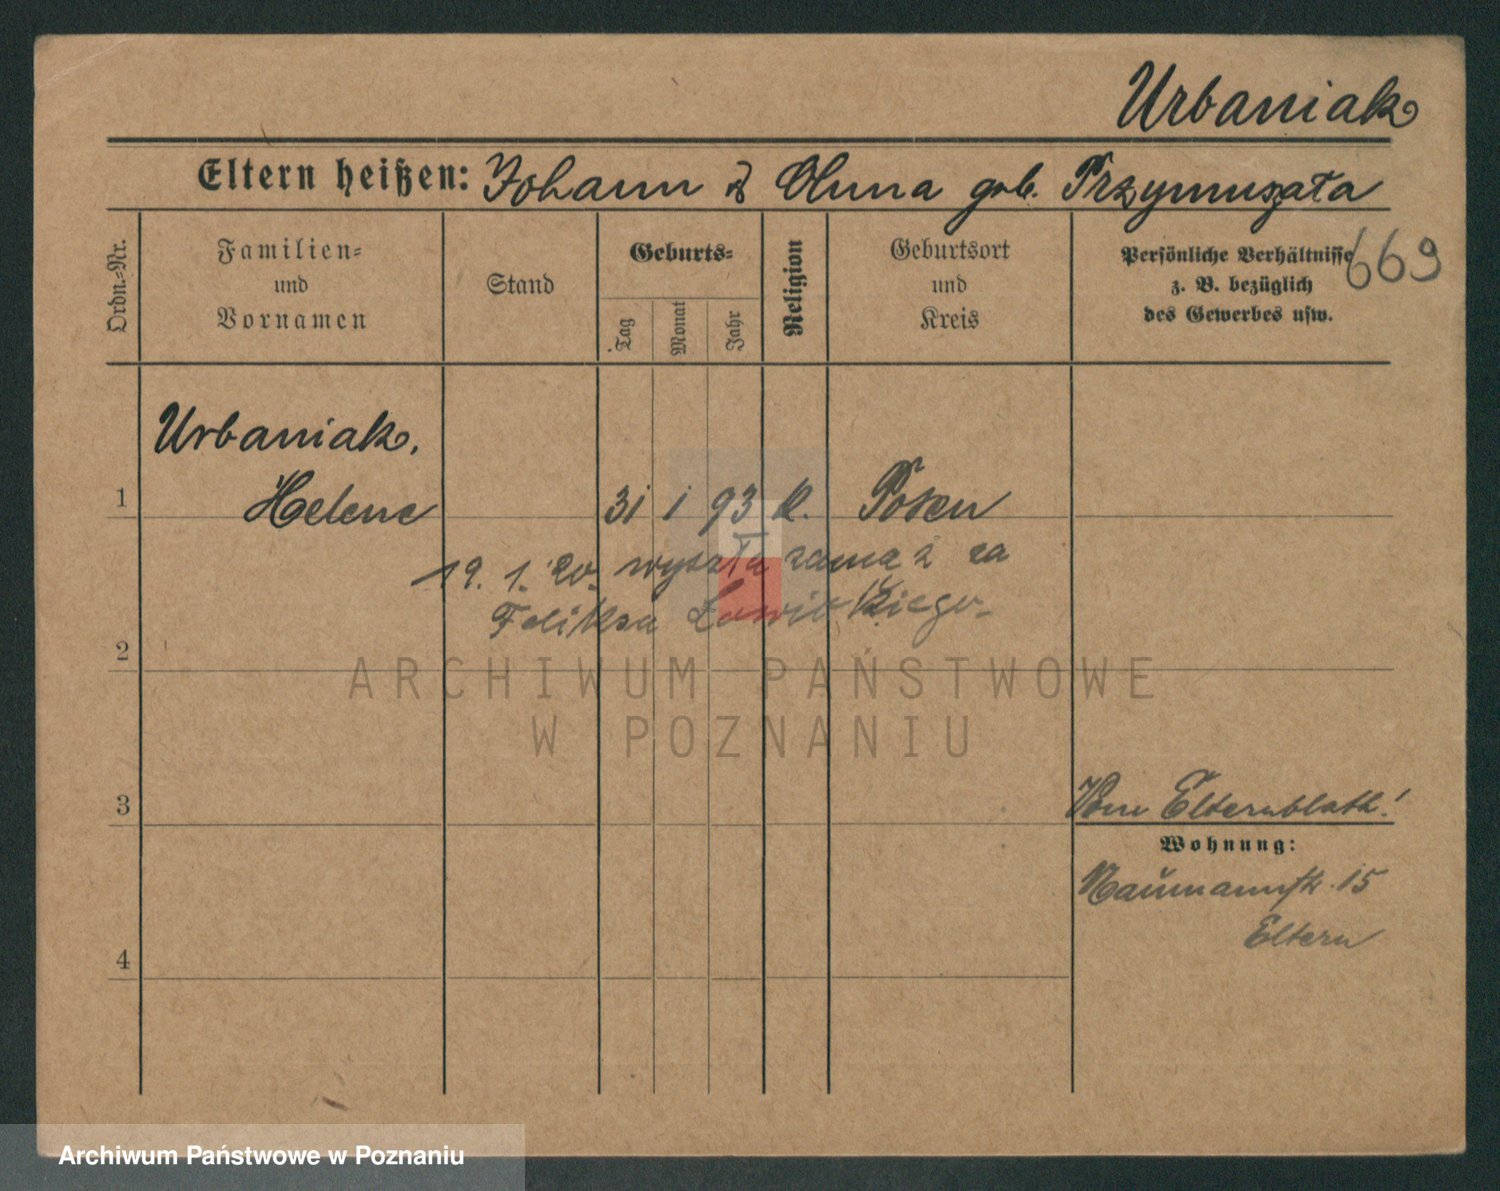 Urbaniak
Eltern heißen: Johann & Anna geb. Przymuszała
669
Ordn.-Nr.
Familien-
und
Vornamen
Stand
Geburts-
Tag
Monat
Jahr
Religion
Geburtsort
und
Kreis
Persönliche Verhältnisse
z. B. bezüglich
des Gewerbes usw.
Urbaniak,
1 Helene 31 1 93 k. Posen
19. 1. 20. wyszła zamąż za
Feliksa
2
ARCHIWUM PAŃSTWOWE
W POZNANIU
3
Vom Elternblatt!
Wohnung:
Naumannstr. 15
Eltern
4
Archiwum Państwowe w Poznaniu